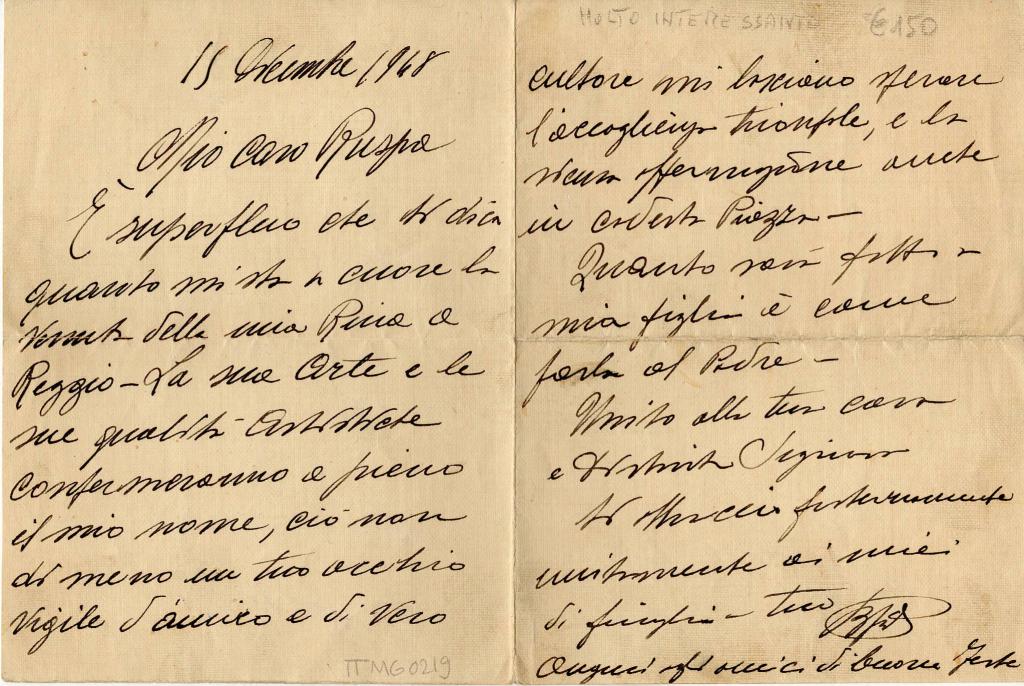 15 Dicembre 1948
Mio caro Ruspa
È superfluo che ti dica
quanto mi sta a cuore la
venuta della mia Rina a
Reggio - La sua Arte e le
sue qualità Artistiche
confermeranno a pieno
il mio nome, ciò non
di meno un tuo occhio
vigile d'amico e di vero
MOLTO INTERESSANTE €150
cultore mi lasciano sperare
l'accoglienza trionfale, e la
sicura affermazione anche
in codesta Piazza -
Quanto sarà fatto a
mia figlia è come
farlo al Padre -
Unito alla tua cara
e distinta Signora
ti abbraccio fraternamente
unitamente ai miei
di famiglia - tuo
Auguri agli amici di buone Feste
ITMG0219